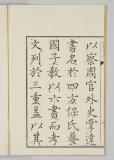 以察周官外史掌達
書名於四方保氏養
國子教以六書而考
文列於三重蓋以其